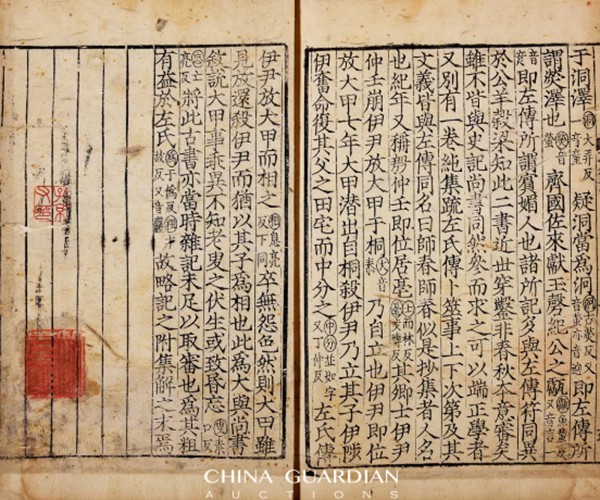 于洞澤疑洞當為泂即左傳所
謂熒澤也齊國佐來獻玉磬紀公之甗
即左傳所謂賓媚人也諸所記多與左傳符同異
於公羊穀梁知此二書近世穿鑿非春秋本意審矣
雖不皆與史記尚書同然參而求之可以端正學者
又別有一卷純集疏左氏傳卜筮事上下次第及其
文義皆與左傳同名曰師春師春似是抄集者人名
也紀年又稱殷仲壬即位居亳其卿士伊尹
仲壬崩伊尹放大甲于桐乃自立也伊尹即位
放大甲七年大甲潛出自桐殺伊尹乃立其子伊陟
伊奮命復其父之田宅而中分之中分並如字又丁仲反左氏傳
伊尹放大甲而相之息亮反下同卒無怨色然則大甲雖
見放還殺伊尹而猶以其子為相也此為大與尚書
敘說大甲事乖異不知老叟之伏生或致昏忘叟素口反
忘亡亮反將此古書亦當時雜記未足以取審也為其粗
有益於左氏為于偽反故略記之附集解之末焉
CHINA GUARDIAN
AUCTIONS